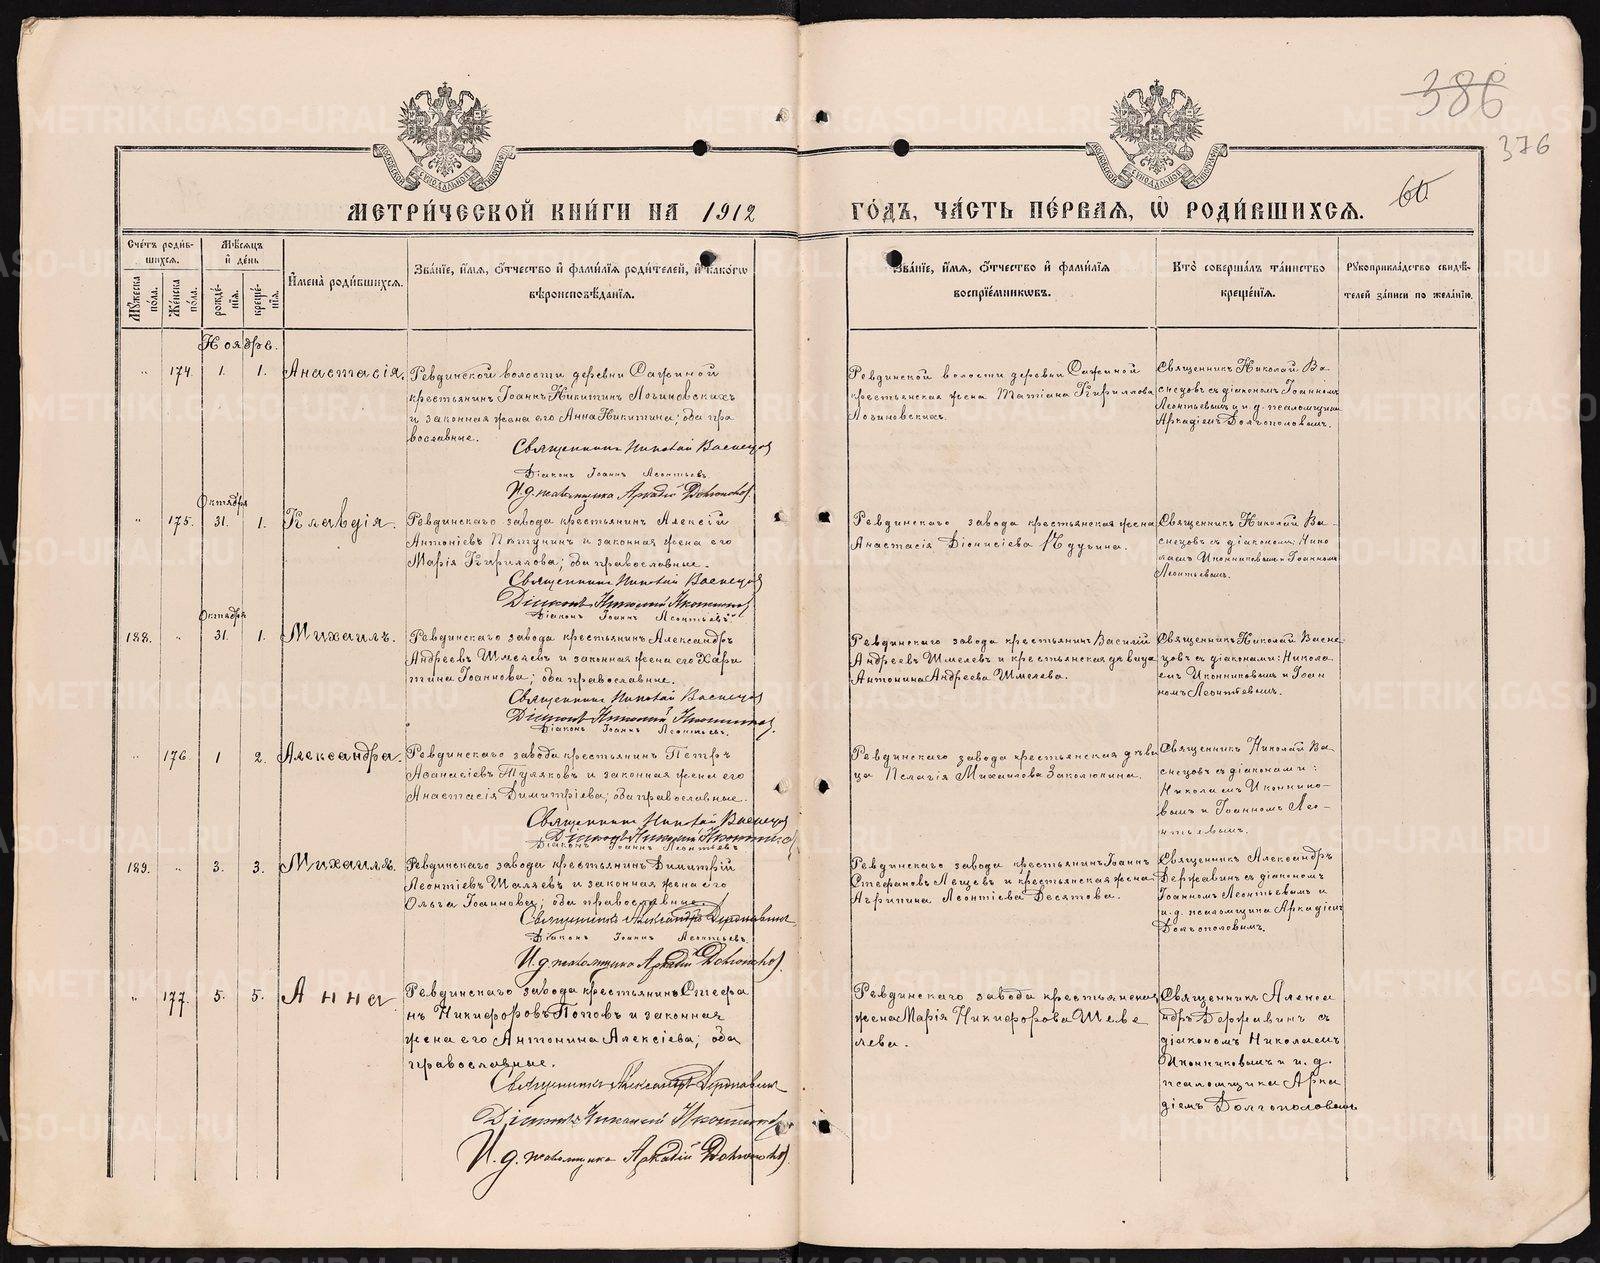 386
376
60
МЕТРИ́ЧЕСКОЙ КНИ́ГИ НА 1912
ГО́ДЪ, ЧА́СТЬ ПЕ́РВАЯ, Ѿ РОДИ́ВШИХСЯ.
Сче́тъ роди́в-
шихся.
Мѣ́сяцъ
и де́нь
Му́жеска по́ла.
Же́нска по́ла.
рожде́-
нїя.
креще́-
нїя.
Имена̀ роди́вшихся.
Зва́нїе, и́мя, о́тчество и фами́лїя роди́телей, и како́гѡ
вѣроисповѣ́данїя.
Зва́нїе, и́мя, о́тчество и фами́лїя
воспрїе́мникѡвъ.
Кто̀ соверша́лъ та́инство
креще́нїя.
Рукоприкла́дство свидѣ́-
телей за́писи по жела́нїю.
Ноябрь.
" 174. 1. 1. Анастасія.
Ревдинской волости деревни Сажиной
крестьянинъ Іоаннъ Никитинъ Логиновскихъ
и законная жена его Анна Никитина; оба пра
вославные.
Священникъ Николай Васнецов
Діаконъ Іоаннъ Леонтьевъ
И.д. псаломщика Аркадій Долгополов
Ревдинской волости деревни Сажиной
крестьянская жена Татіана Кириллова
Логиновскихъ.
Священникъ Николай Ва-
снецовъ съ діакономъ Іоанномъ
Леонтьевымъ и и.д. псаломщика
Аркадіемъ Долгополовымъ.
Октября
" 175. 31. 1. Клавдія.
Ревдинскаго завода крестьянинъ Алексій
Антоніевъ Пятунинъ и законная жена его
Марія Кириллова; оба православные.
Священникъ Николай Васнецов
Діаконъ Николай Иконников
Діаконъ Іоаннъ Леонтьевъ.
Ревдинскаго завода крестьянская жена
Анастасія Діонисіева
Священникъ Николай Ва-
снецовъ съ діаконами: Нико
лаемъ Иконниковымъ и Іоанномъ
Леонтьевымъ.
Октября
188. " 31. 1. Михаилъ.
Ревдинскаго завода крестьянинъ Александръ
Андреевъ Шмелевъ и законная жена его Хари
тина Іоаннова; оба православные.
Священникъ Николай Васнецов
Діаконъ Николай Иконников
Діаконъ Іоаннъ Леонтьевъ.
Ревдинскаго завода крестьянинъ Василій
Андреевъ Шмелевъ и крестьянская дѣвица
Антонина Андреева Шмелева.
Священникъ Николай Васне-
цовъ съ діаконами: Никола-
емъ Иконниковымъ и Іоан
номъ Леонтьевымъ.
" 176 1 2. Александра.
Ревдинскаго завода крестьянинъ Петръ
Аѳанасіевъ Туляковъ и законная жена его
Анастасія Димитріева; оба православные.
Священникъ Николай Васнецов
Діаконъ Николай Иконников
Діаконъ Іоаннъ Леонтьевъ
Ревдинскаго завода крестьянская дѣви
ца Пелагія Михаилова Заколюкина.
Священникъ Николай Ва-
снецовъ съ діаконами:
Николаемъ Иконнико-
вымъ и Іоанномъ Лео-
нтьевымъ.
189. " 3. 3. Михаилъ.
Ревдинскаго завода крестьянинъ Димитрій
Леонтіевъ Шаляевъ и законная жена его
Ольга Іоаннова; оба православные.
Священникъ Александръ Державинъ
Діаконъ Іоаннъ Леонтьевъ.
И.д. псаломщика Аркадій Долгополов.
Ревдинскаго завода крестьянинъ Іоаннъ
Стефановъ Лещевъ и крестьянская жена
Агрипина Леонтіева Десятова.
Священникъ Александръ
Державинъ съ діакономъ
Іоанномъ Леонтьевымъ и
и.д. псаломщика Аркадіемъ
Долгополовымъ.
" 177. 5. 5. Анна
Ревдинскаго завода крестьянинъ Стефа
нъ Никифоровъ Поповъ и законная
жена его Антонина Алексіева; оба
православные.
Священникъ Александръ Державинъ
Діаконъ Николай Иконников
И.д. псаломщика Аркадій Долгополов.
Ревдинскаго завода крестьянская
жена Марія Никифорова Шеве
лева.
Священникъ Алекса
ндръ Державинъ съ
діакономъ Николаемъ
Иконниковымъ и и.д.
псаломщика Арка
діемъ Долгополовымъ
METRIKI.GASO-URAL.RU